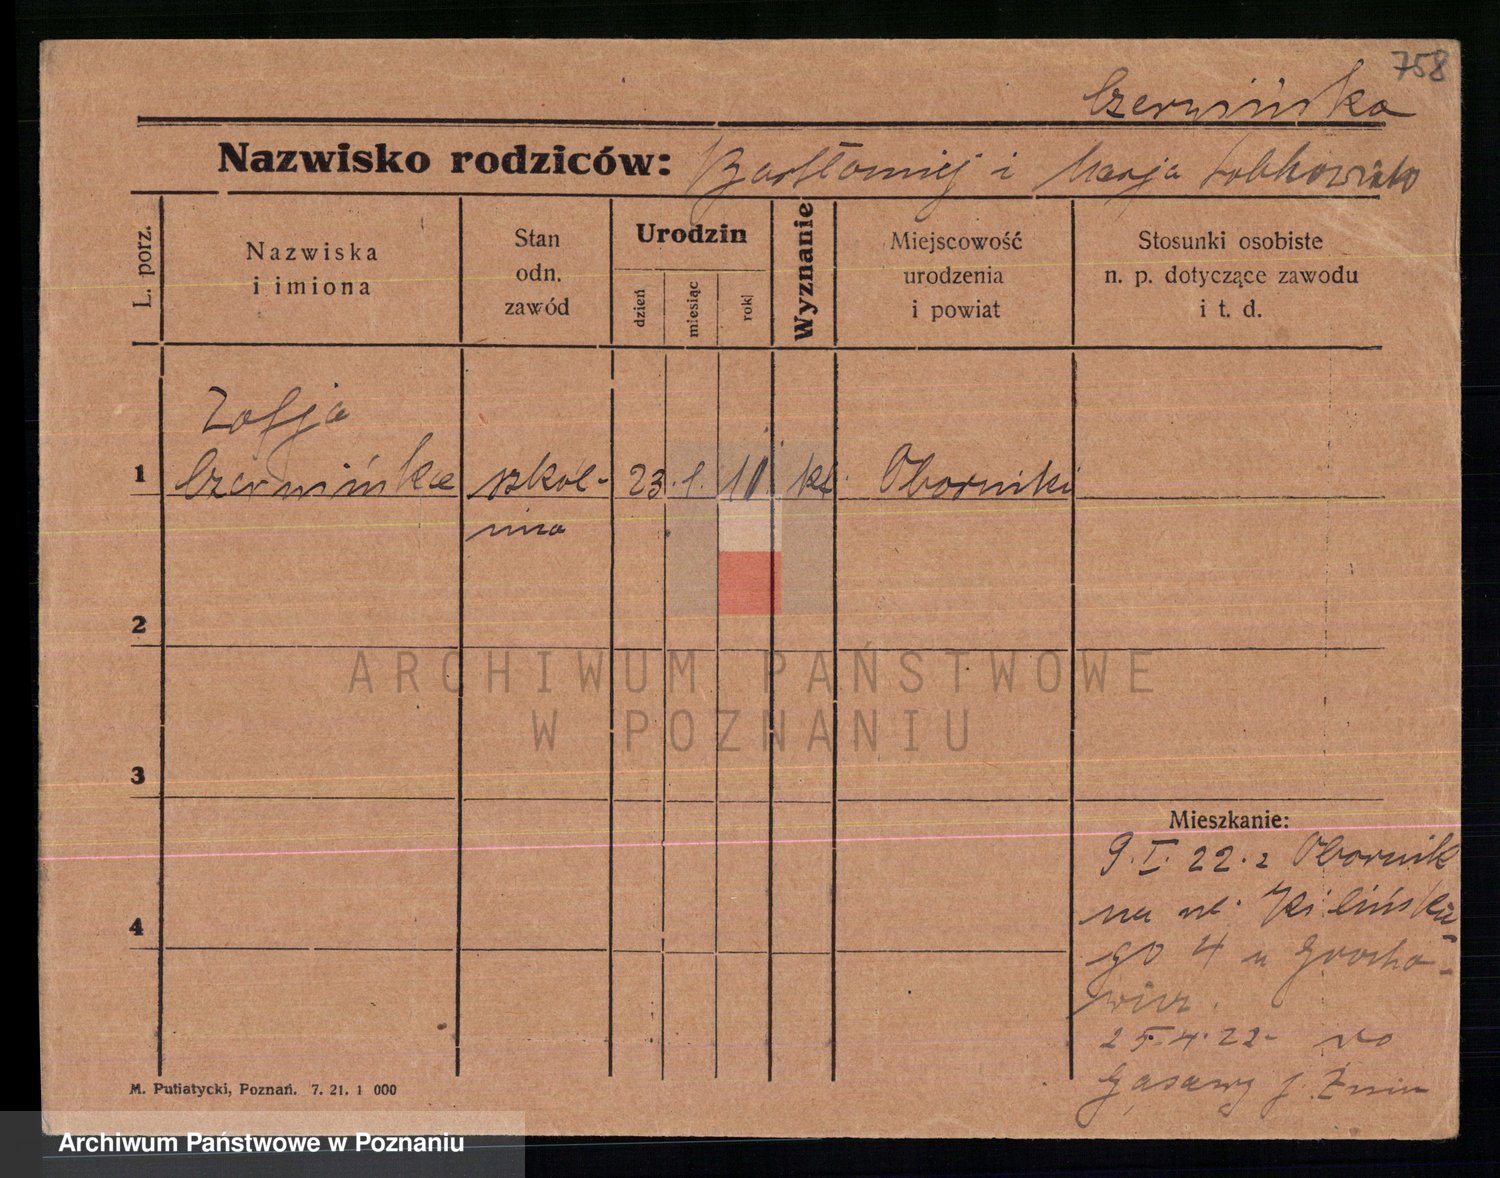 758
Czerwińska
Nazwisko rodziców: Bartłomiej i Marja
L. porz.
Nazwiska
i imiona
Stan
odn.
zawód
Urodzin
dzień
miesiąc
rok
Wyznanie
Miejscowość
urodzenia
i powiat
Stosunki osobiste
n. p. dotyczące zawodu
i t. d.
Zofja
1 Czerwińska szkol- 23. 1. 11. kt. Oborniki
nina
2
3
4
Mieszkanie:
9. I. 22. z Obornik
na ul. Kilińskie-
go 4 u Grocho-
wicz.
25.4.22- do
Gąsawy p. Żnin
M. Putiatycki, Poznań. 7. 21. 1 000
ARCHIWUM PAŃSTWOWE
W POZNANIU
Archiwum Państwowe w Poznaniu